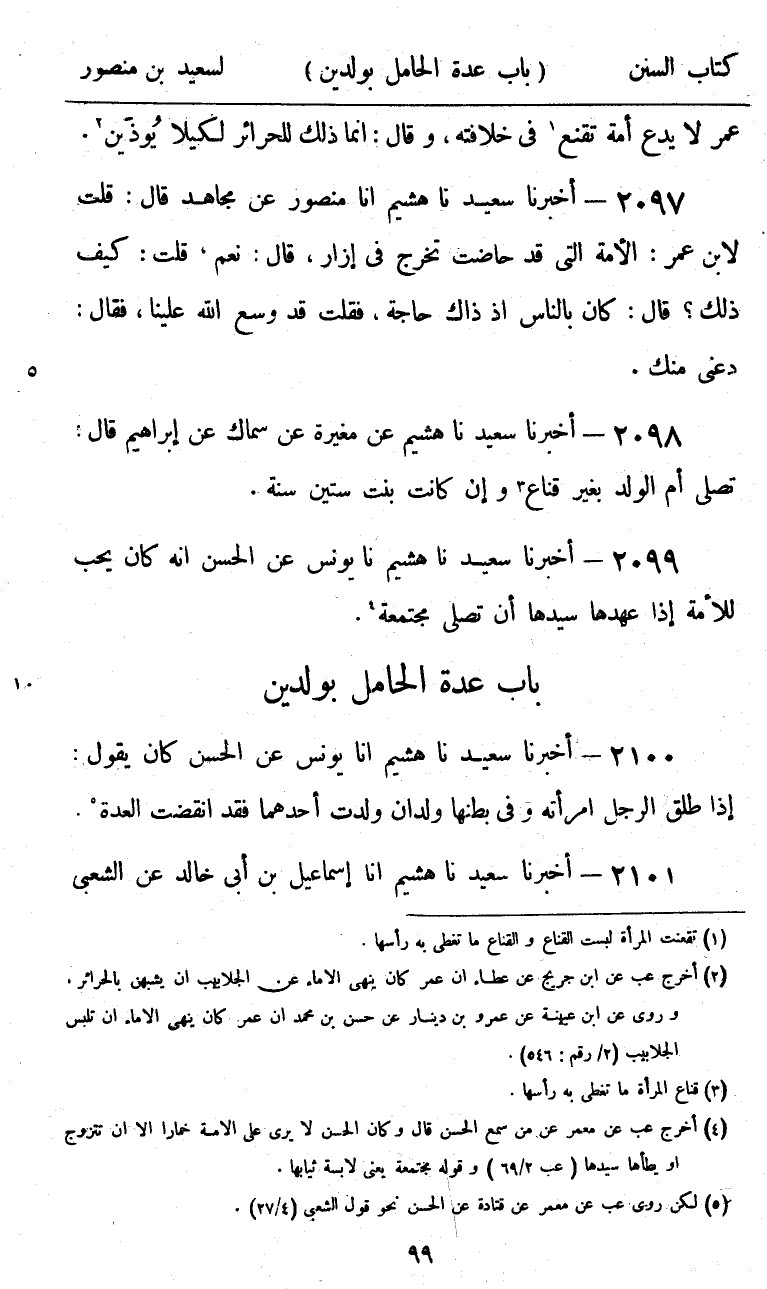 كتاب السنن ( باب عدة الحامل بولدين ) لسعيد بن منصور
عمر لا يدع أمة تقنع١ فى خلافته، و قال : انما ذلك للحرائر لكيلا يُوذَين٢ .
٢٠٩٧ – أخبرنا سعيد نا هشيم انا منصور عن مجاهد قال : قلت
لابن عمر : الأمة التى قد حاضت تخرج فى إزار ، قال : نعم ، قلت : كيف
ذلك ؟ قال : كان بالناس اذ ذاك حاجة ، فقلت قد وسع الله علينا ، فقال :
دعنى منك . ٥
٢٠٩٨ – أخبرنا سعيد نا هشيم عن مغيرة عن سماك عن إبراهيم قال :
تصلى أم الولد بغير قناع٣ و إن كانت بنت ستين سنة .
٢٠٩٩ – أخبرنا سعيد نا هشيم نا يونس عن الحسن انه كان يحب
للأمة إذا عهدها سيدها أن تصلى مجتمعة٤ .
باب عدة الحامل بولدين ١٠
٢١٠٠ – أخبرنا سعيد نا هشيم انا يونس عن الحسن كان يقول :
إذا طلق الرجل امرأته و فى بطنها ولدان ولدت أحدهما فقد انقضت العدة٥ .
٢١٠١ – أخبرنا سعيد نا هشيم انا إسماعيل بن أبى خالد عن الشعبى
(١) تقعنت المرأة لبست القناع و القناع ما تغطى به رأسها .
(٢) أخرج عب عن ابن جريج عن عطاء ان عمر كان ينهى الاماء عن الجلابيب ان يشبهن بالحرائر ،
و روى عن ابن عيينة عن عمرو بن دينار عن حسن بن محمد ان عمر كان ينهى الاماء ان تلبس
الجلابيب (٢/ رقم : ٥٤٦) .
(٣) قناع المرأة ما تغطى به رأسها .
(٤) أخرج عب عن معمر عن من سمع الحسن قال و كان الحسن لا يرى على الامة خمارا الا ان تتزوج
او يطأها سيدها ( عب ٦٩/٢ ) و قوله مجتمعة يعنى لابسة ثيابها .
(٥) لكن روى عب عن معمر عن قتادة عن الحسن نحو قول الشعبى (٢٧/٤) .
٩٩